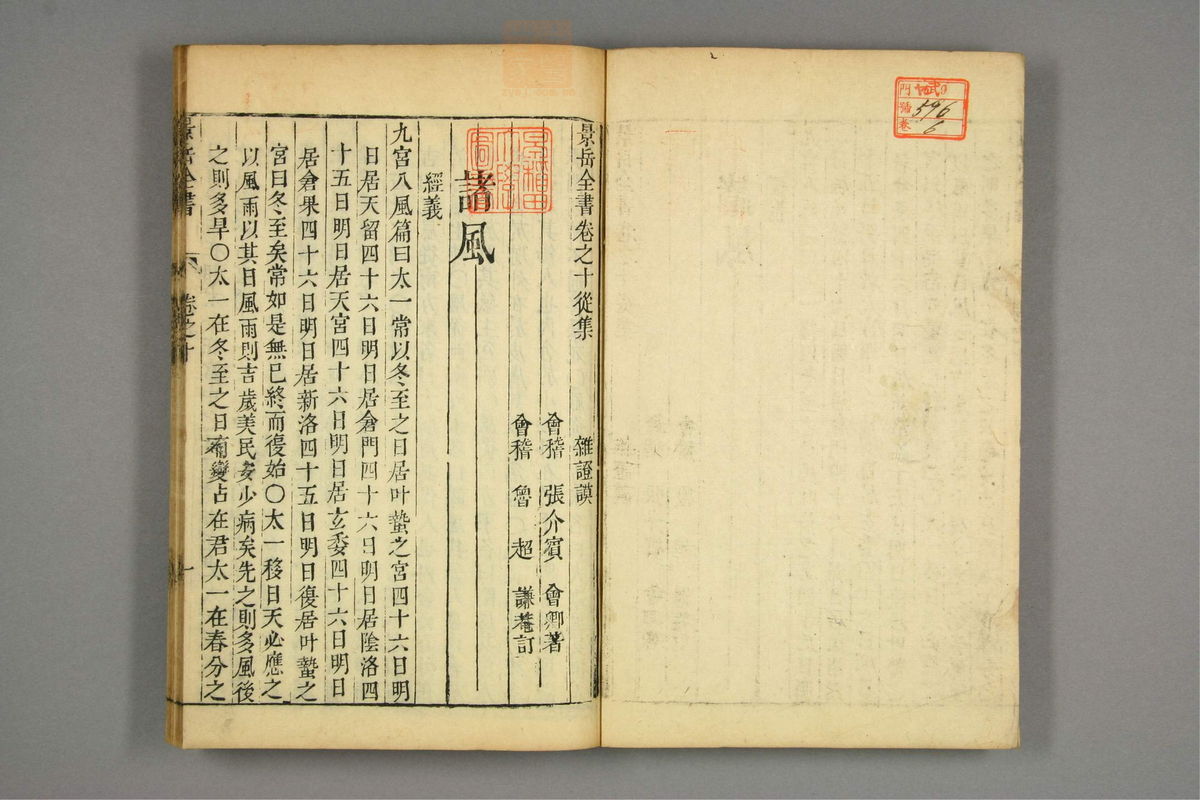 門
號 596
卷 6
景岳全書卷之十從集 雜證謨
會稽 張介賓 會卿著
會稽 魯超 謙菴訂
諸風
經義
九宮八風篇曰太一常以冬至之日居叶蟄之宮四十六日明
日居天留四十六日明日居倉門四十六日明日居陰洛四
十五日明日居天宮四十六日明日居玄委四十六日明日
居倉果四十六日明日居新洛四十五日明日復居叶蟄之
宮曰冬至矣常如是無已終而復始○太一移日天必應之
以風雨以其日風雨則吉歲美民安少病矣先之則多風後
之則多旱○太一在冬至之日有變占在君太一在春分之
景岳全書 卷之十 一